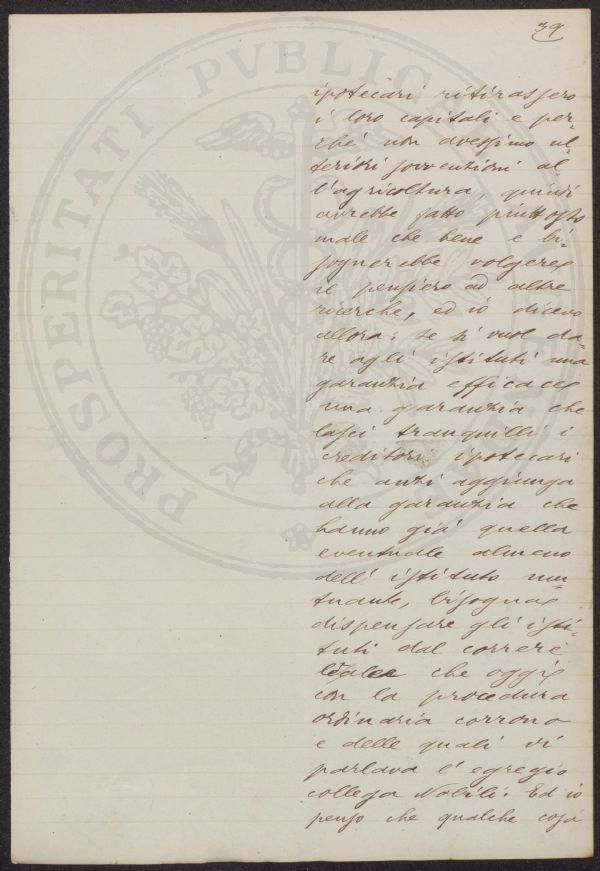 39
PROSPERITATI PVBLICAE
ipotecari ritirassero
i loro capitali e per-
chè non avessimo ul-
teriori sovvenzioni al-
l'agricoltura, quindi
avrebbe fatto piuttosto
male che bene e bi-
sognerebbe volgere
il pensiero ad altre
ricerche, ed io dicevo
allora: se si vuol da-
re agli istituti una
garanzia efficace
una garanzia che
lasci tranquilli i
creditori ipotecari
che anzi aggiunga
alla garanzia che
hanno già quella
eventuale almeno
dell' istituto mu-
tuante, bisogna
dispensare gli isti-
tuti dal correre
che oggi
con la procedura
ordinaria corrono
e delle quali vi
parlava l' egregio
collega Nobili. Ed io
penso che qualche cosa